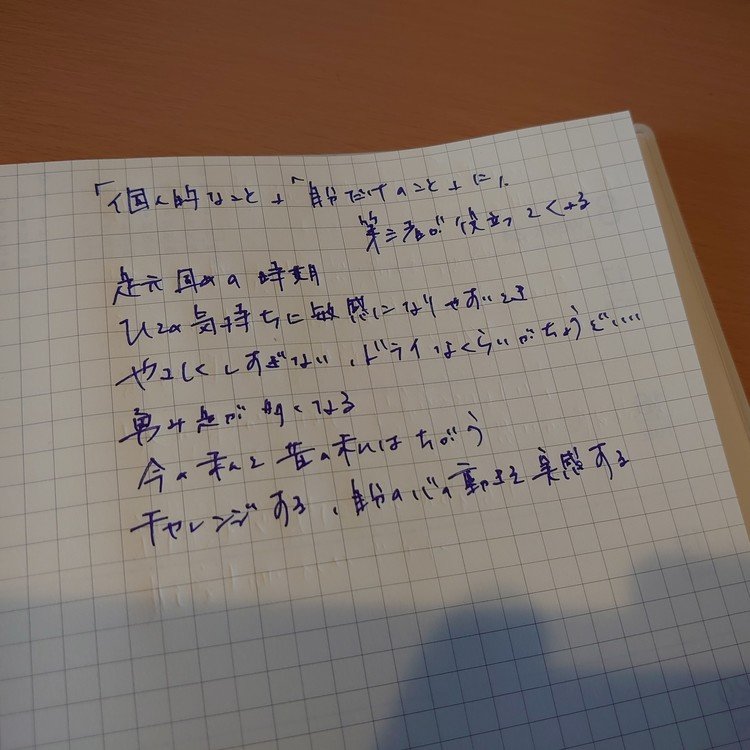 「個人的なこと」「自分だけのこと」に、
第三者が役立ってくれる
足元固めの時期
ひとの気持ちに敏感になりやすいとき
やさしくしすぎない、ドライなくらいがちょうどいい
勇み足が多くなる
今の私と昔の私はちがう
チャレンジする、自分の心の動きを実感する